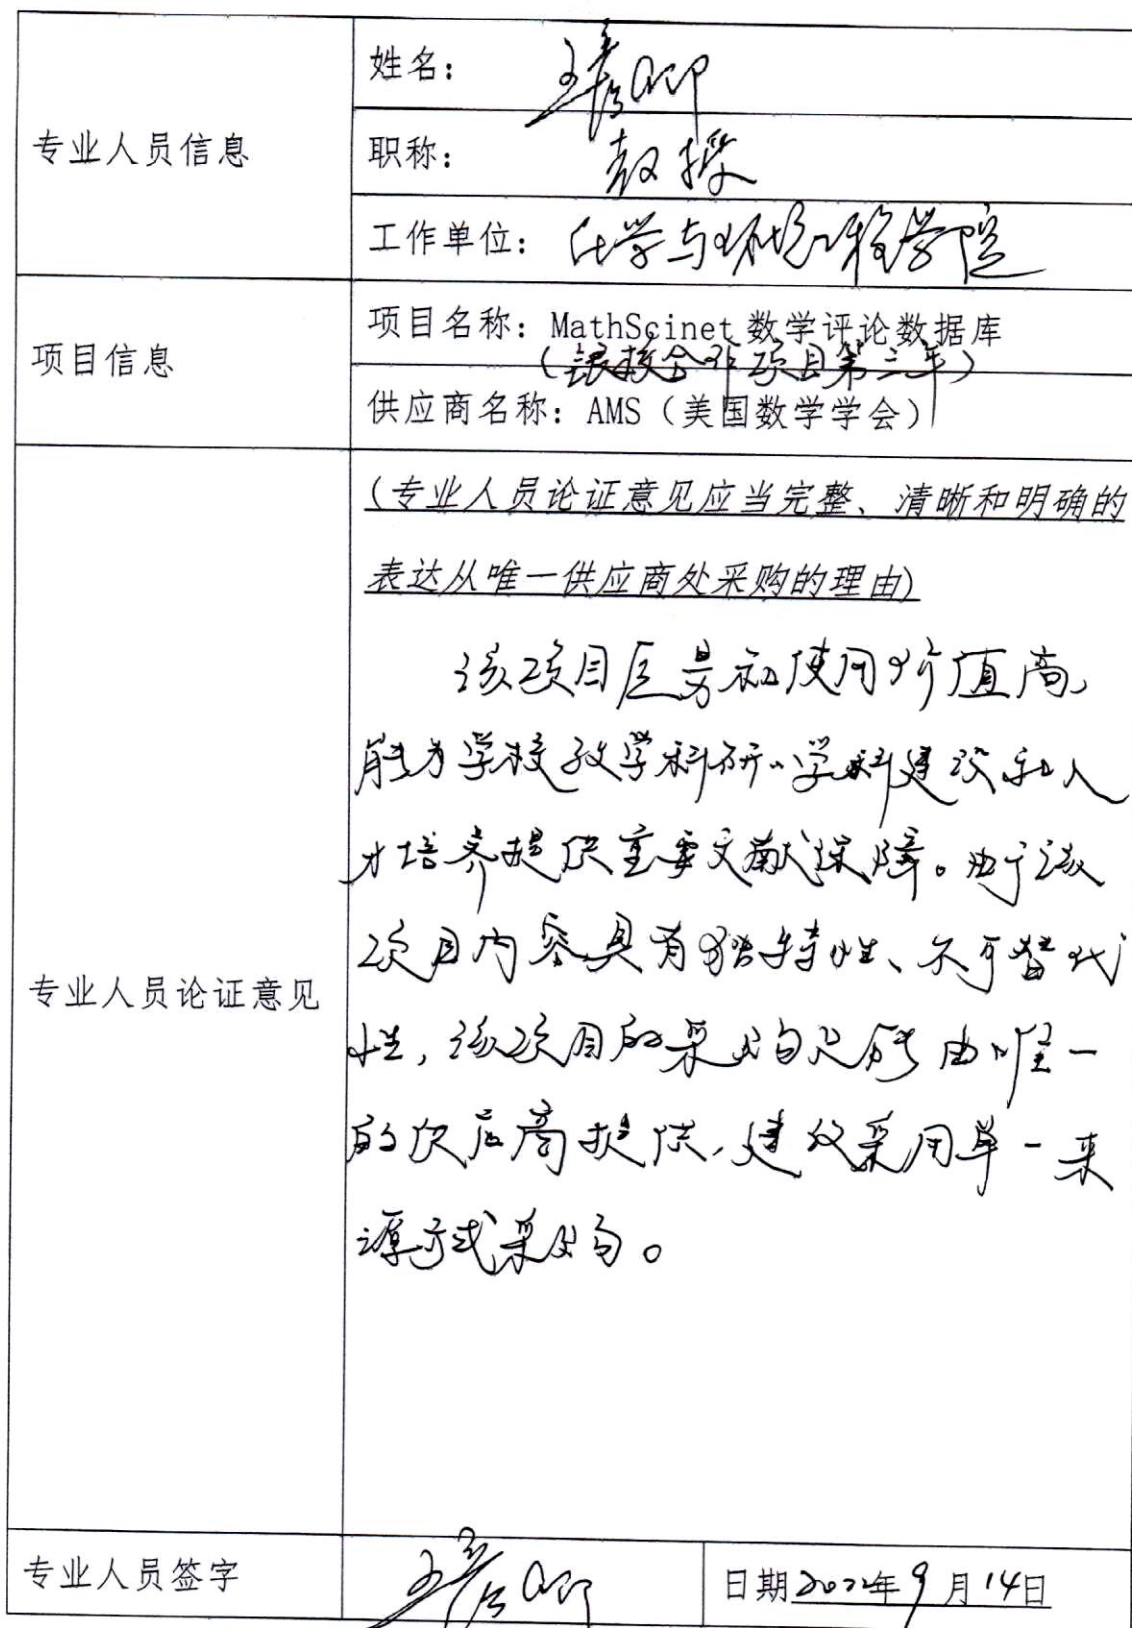 专业人员信息
姓名：
职称： 教授
工作单位： 化学与环境工程学院
项目信息
项目名称：MathScinet 数学评论数据库
(银校合作项目第三年)
供应商名称：AMS（美国数学学会）
专业人员论证意见
(专业人员论证意见应当完整、清晰和明确的
表达从唯一供应商处采购的理由)
该项目 和使用价值高，
能为学校教学科研、学科建设和人
才培养提供重要文献保障。由于该
项目内容具有独特性、不可替代
性，该项目的采购只能由唯一
的供应商提供，建议采用单一来
源方式采购。
专业人员签字
日期2022年9月14日